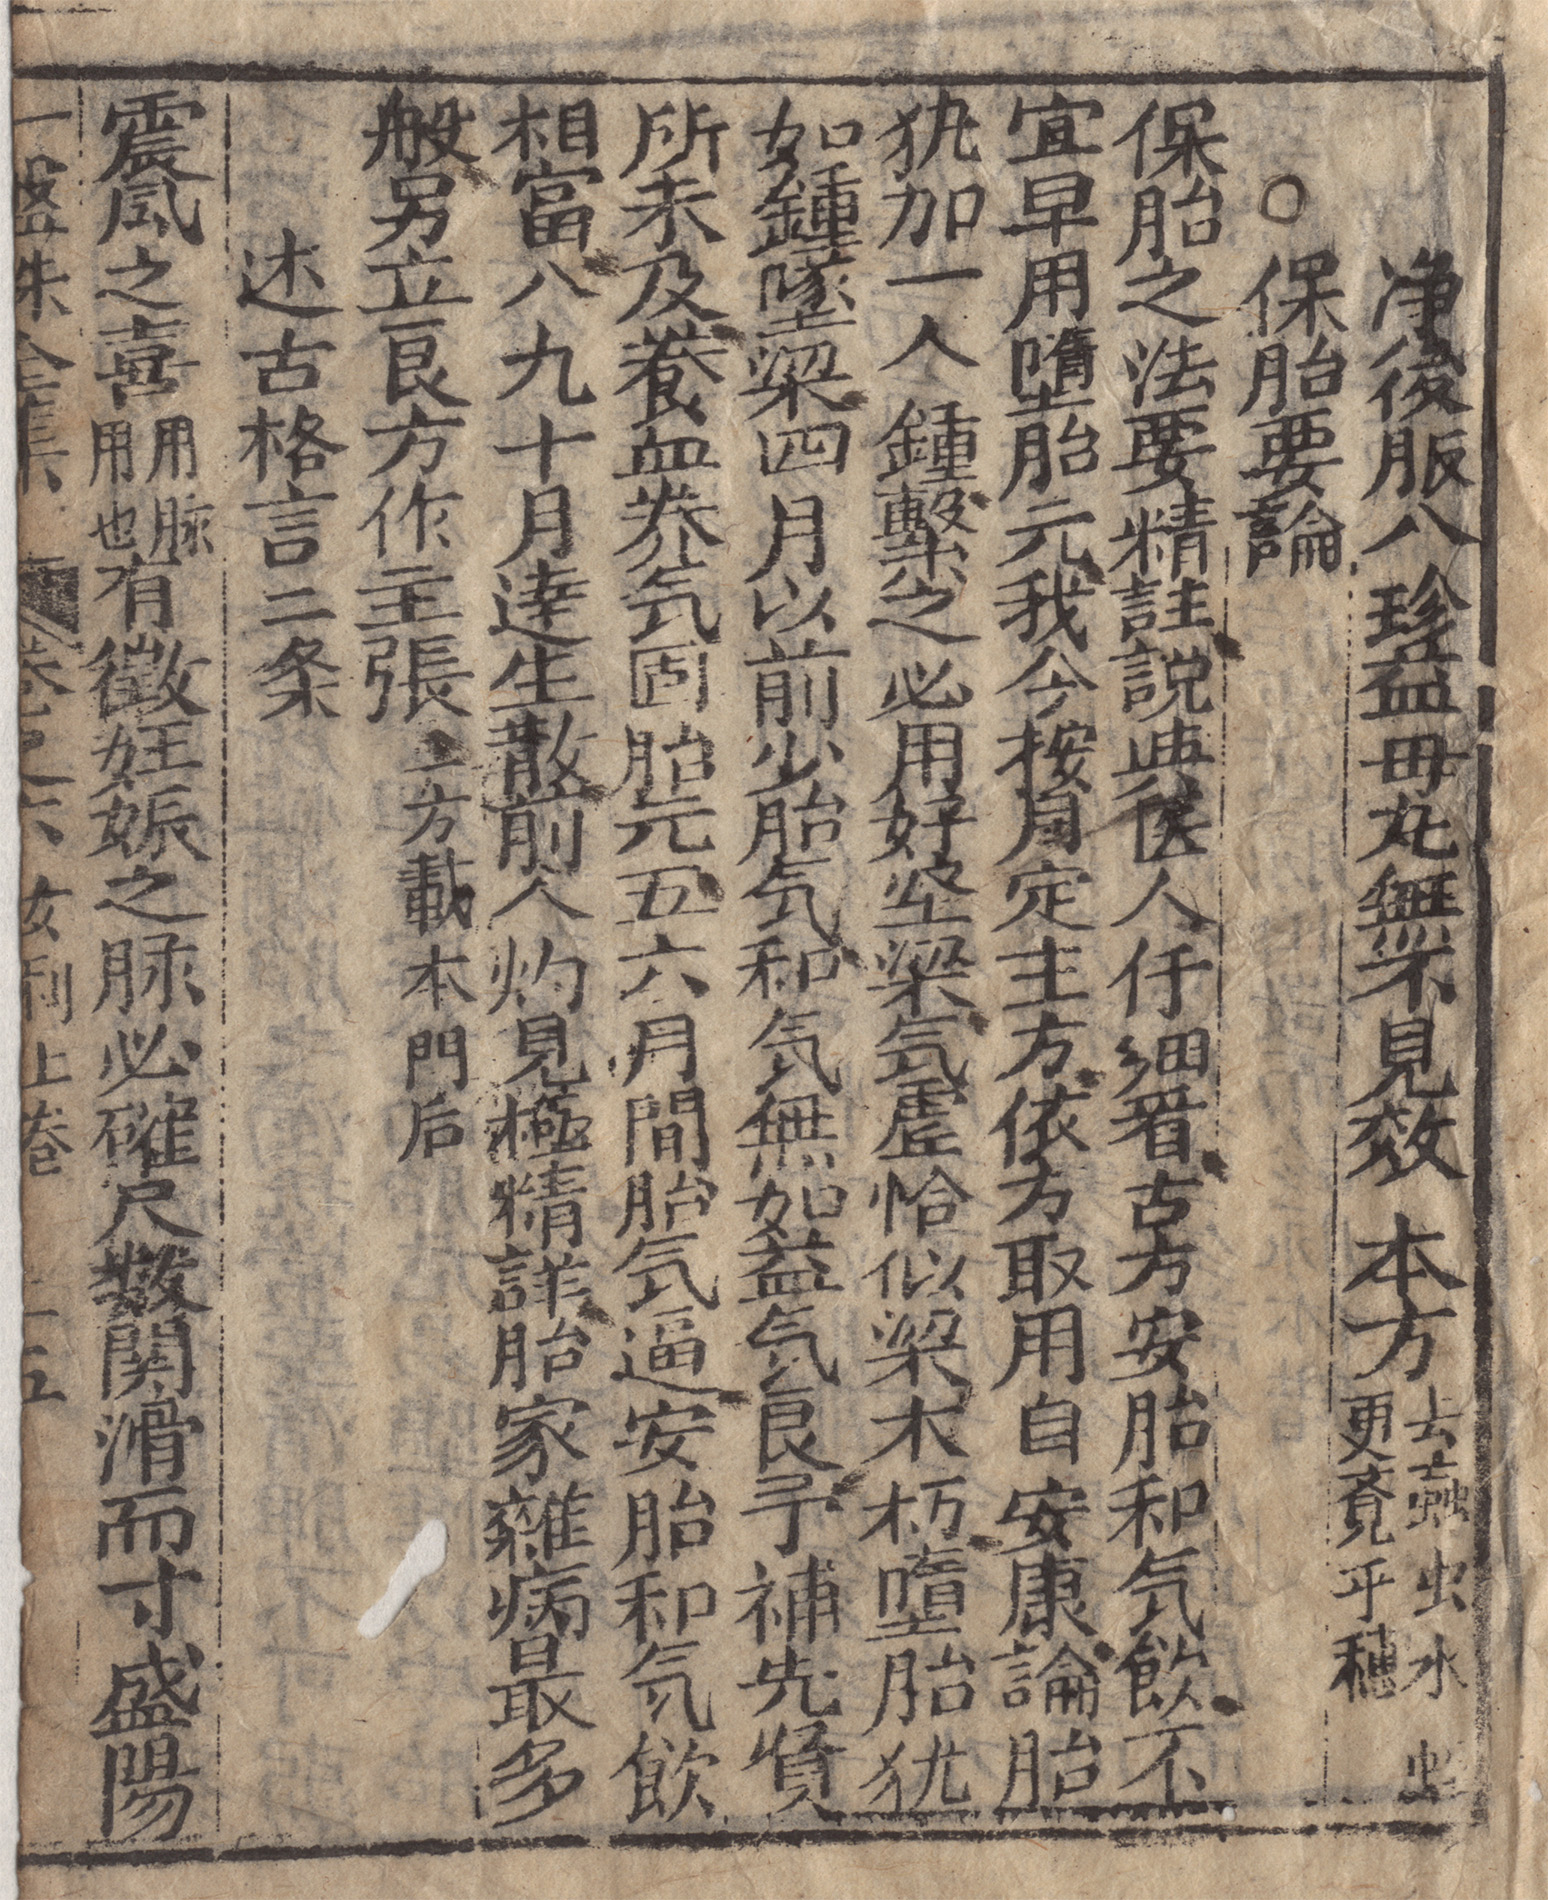 净後服八珍益毋丸無不見效 本方去蟲虫水虫更竟乎穗
○保胎要論
保胎之法要精註說典医人仔細看古方安胎和気飲不
宜早用墮胎元我今按月定主方依方取用自安康論胎
犹加一人鍾繫之必用好坚梁気虗恰似梁木朽墮胎犹
如鍾墜梁四月以前少胎気和気無如益気良予補先賢
所未及養血养気固胎元五六月間胎気逼安胎和気飲
相當八九十月達生散前人灼見極精詳胎家雜病最多
般另立良方作主張 立方載本門后
述古格言二条
震风之喜用脉用也有徵妊娠之脉必確尺數関滑而寸盛陽
一盤珠全集 卷之六 女刊上巻 二五